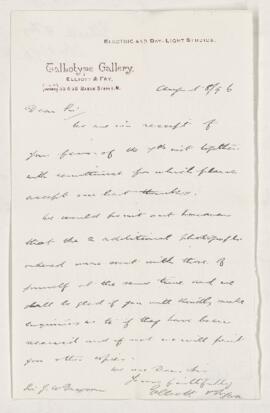 ELECTRIC AND DAY-LIGHT STUDIOS.
Talbotype Gallery.
ELLIOTT & FRY.
55 & 56 BAKER STREET, W.
Augt 8/96
Dear Sir,
We are in receipt of
your favor of the 7th inst together
with remittance for which please
accept our best thanks.
We would point out however
that the 2 additional photographs
ordered were sent with those of
yourself at the same time and we
shall be glad if you will kindly make
enquiries as to if they have been
received and if not we will print
you other copies.
We are Dear Sir
Yours faithfully
Elliott & Fry
Sir J. W.